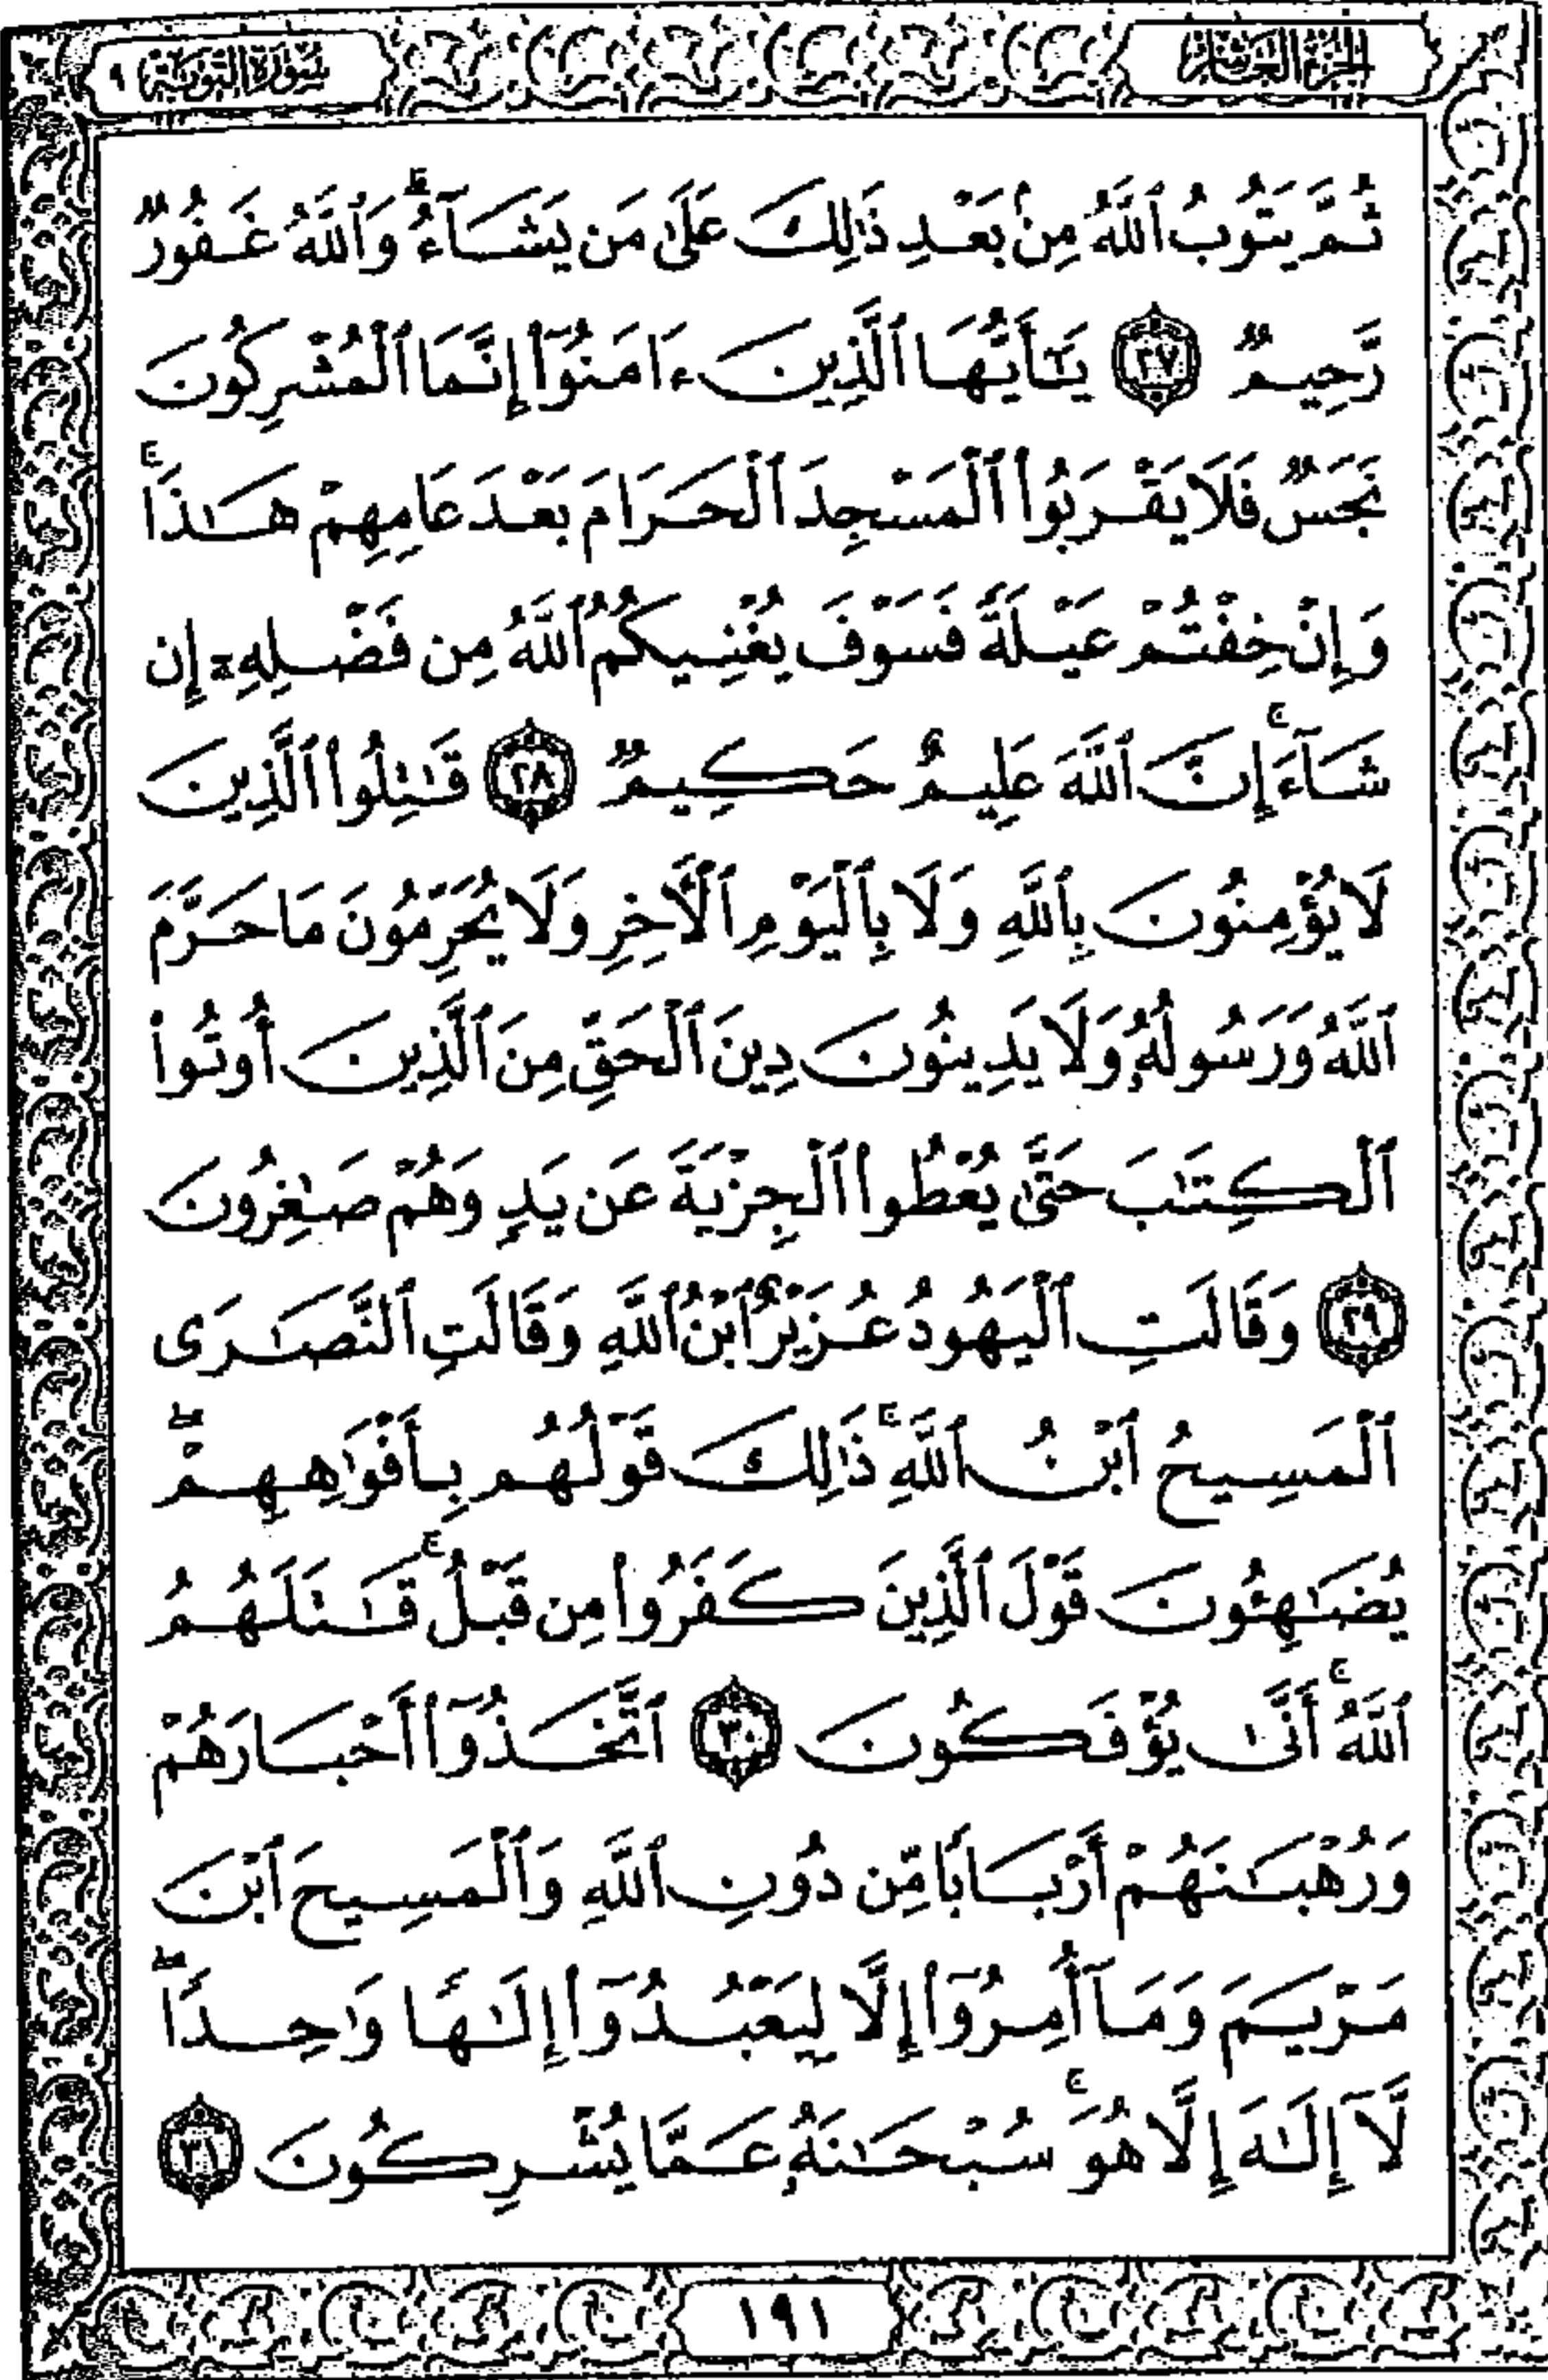 الجزء العاشر
سورة التوبة ٩
ثُمَّ يَتُوبُ ٱللَّهُ مِنۢ بَعْدِ ذَٰلِكَ عَلَىٰ مَن يَشَآءُ ۗ وَٱللَّهُ غَفُورٌ
رَّحِيمٌ ٢٧ يَـٰٓأَيُّهَا ٱلَّذِينَ ءَامَنُوٓا۟ إِنَّمَا ٱلْمُشْرِكُونَ
نَجَسٌ فَلَا يَقْرَبُوا۟ ٱلْمَسْجِدَ ٱلْحَرَامَ بَعْدَ عَامِهِمْ هَـٰذَا ۚ
وَإِنْ خِفْتُمْ عَيْلَةً فَسَوْفَ يُغْنِيكُمُ ٱللَّهُ مِن فَضْلِهِۦٓ إِن
شَآءَ ۚ إِنَّ ٱللَّهَ عَلِيمٌ حَكِيمٌ ٢٨ قَـٰتِلُوا۟ ٱلَّذِينَ
لَا يُؤْمِنُونَ بِٱللَّهِ وَلَا بِٱلْيَوْمِ ٱلْـَٔاخِرِ وَلَا يُحَرِّمُونَ مَا حَرَّمَ
ٱللَّهُ وَرَسُولُهُۥ وَلَا يَدِينُونَ دِينَ ٱلْحَقِّ مِنَ ٱلَّذِينَ أُوتُوا۟
ٱلْكِتَـٰبَ حَتَّىٰ يُعْطُوا۟ ٱلْجِزْيَةَ عَن يَدٍ وَهُمْ صَـٰغِرُونَ
٢٩ وَقَالَتِ ٱلْيَهُودُ عُزَيْرٌ ٱبْنُ ٱللَّهِ وَقَالَتِ ٱلنَّصَـٰرَى
ٱلْمَسِيحُ ٱبْنُ ٱللَّهِ ۚ ذَٰلِكَ قَوْلُهُم بِأَفْوَٰهِهِمْ ۖ
يُضَـٰهِـُٔونَ قَوْلَ ٱلَّذِينَ كَفَرُوا۟ مِن قَبْلُ ۚ قَـٰتَلَهُمُ
ٱللَّهُ ۚ أَنَّىٰ يُؤْفَكُونَ ٣٠ ٱتَّخَذُوٓا۟ أَحْبَارَهُمْ
وَرُهْبَـٰنَهُمْ أَرْبَابًا مِّن دُونِ ٱللَّهِ وَٱلْمَسِيحَ ٱبْنَ
مَرْيَمَ وَمَآ أُمِرُوٓا۟ إِلَّا لِيَعْبُدُوٓا۟ إِلَـٰهًا وَٰحِدًا ۖ
لَّآ إِلَـٰهَ إِلَّا هُوَ ۚ سُبْحَـٰنَهُۥ عَمَّا يُشْرِكُونَ ٣١
١٩١